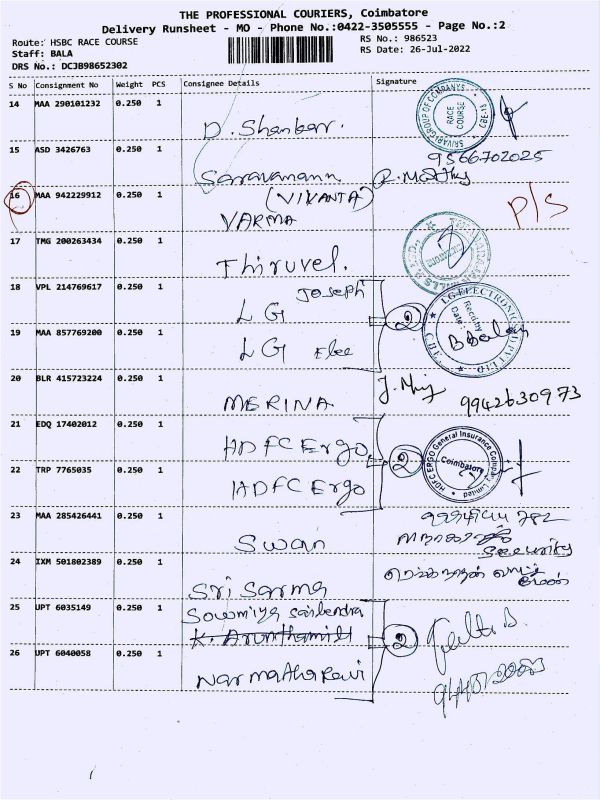 THE PROFESSIONAL COURIERS, Coimbatore
Delivery Runsheet - MO - Phone No.:0422-3505555 - Page No.:2
Route: HSBC RACE COURSE
RS No.: 986523
Staff: BALA
RS Date: 26-Jul-2022
DRS No.: DCJB98652302
S No Consignment No Weight PCS Consignee Details Signature
14 MAA 290101232 0.250 1
D. Shankar.
SRIVARI GROUP OF COMPANYS RACE COURSE CBE-18
15 ASD 3426763 0.250 1
9566702025
Saravanann R. Mathy
16 MAA 942229912 0.250 1
(VIVANTA)
VARMA
P/S
17 TMG 200263434 0.250 1
Thiruvel.
18 VPL 214769617 0.250 1
Joseph
LG
2
LG ELECTRONICS PVT LTD CBE
Recd by
Date:
19 MAA 857769200 0.250 1
LG Ebee
20 BLR 415723224 0.250 1
MERINA
9942630973
21 EDQ 17402012 0.250 1
HDFC Ergo
2
HDFC ERGO General Insurance Company Limited
Coimbatore
22 TRP 7765035 0.250 1
HDFC Ergo
23 MAA 285426441 0.250 1
Swan
Security
24 IXM 501802389 0.250 1
Sri Sarma
25 UPT 6035149 0.250 1
Sowmiya Sailendra
K. Arunthamil
2
26 UPT 6040058 0.250 1
Narmatha Devi